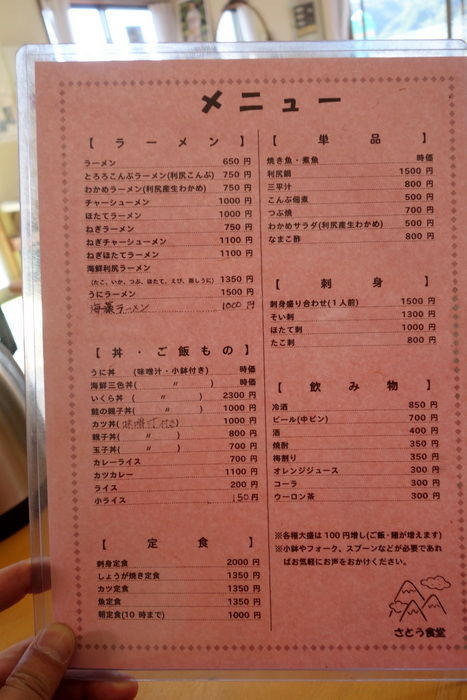 メニュー
【ラーメン】
ラーメン 650円
とろろこんぶラーメン(利尻こんぶ) 750円
わかめラーメン(利尻産生わかめ) 750円
チャーシューメン 1000円
ほたてラーメン 1000円
ねぎラーメン 750円
ねぎチャーシューメン 1100円
ねぎほたてラーメン 1100円
海鮮利尻ラーメン
(たこ、いか、つぶ、ほたて、えび、蒸しうに) 1350円
うにラーメン 1500円
海藻ラーメン 1000円
【丼・ご飯もの】
うに丼 (味噌汁・小鉢付き) 時価
海鮮三色丼( 〃 ) 時価
いくら丼 ( 〃 ) 2300円
鮭の親子丼( 〃 ) 1000円
カツ丼(味噌汁付き) 1000円
親子丼( 〃 ) 800円
玉子丼( 〃 ) 700円
カレーライス 700円
カツカレー 1100円
ライス 200円
小ライス 150円
【定食】
刺身定食 2000円
しょうが焼き定食 1350円
カツ定食 1350円
魚定食 1350円
朝定食(10時まで) 1000円
【単品】
焼き魚・煮魚 時価
利尻鍋 1500円
三平汁 800円
こんぶ佃煮 500円
つぶ焼 700円
わかめサラダ(利尻産生わかめ) 500円
なまこ酢 800円
【刺身】
刺身盛り合わせ(1人前) 1500円
そい刺 1300円
ほたて刺 1000円
たこ刺 800円
【飲み物】
冷酒 850円
ビール(中ビン) 700円
酒 400円
焼酎 350円
梅割り 350円
オレンジジュース 300円
コーラ 300円
ウーロン茶 300円
※各種大盛は100円増し(ご飯・麺が増えます)
※小鉢やフォーク、スプーンなどが必要であれ
ばお気軽にお声をおかけください。
さとう食堂